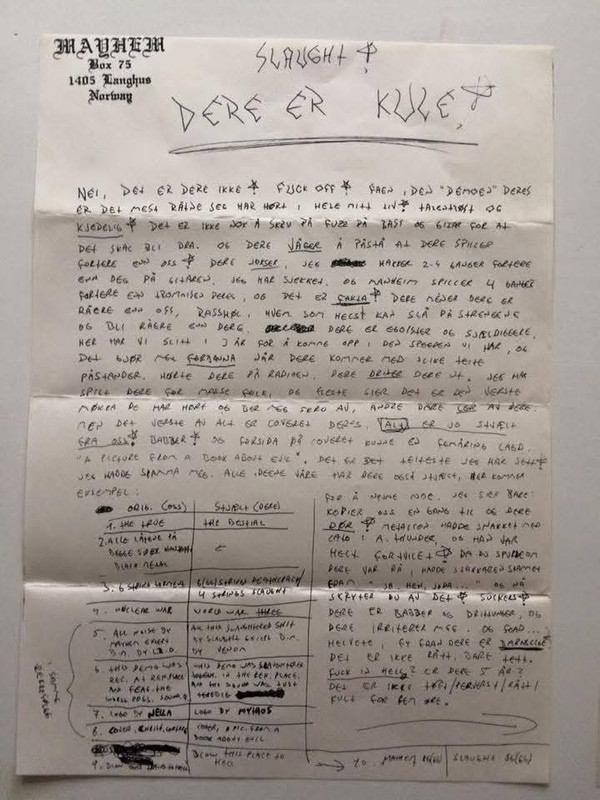 MAYHEM
Box 75
1405 Langhus
Norway
SLAUGHT!
DERE ER KULE!
NEI, DET ER DERE IKKE! FUCK OFF! FAEN, DEN "DEMOEN" DERES
ER DET MEST RÅTNE JEG HAR HØRT I HELE MITT LIV! TALENTLØST OG
KJEDELIG! DET ER IKKE NOK Å SKRU PÅ FUZZ PÅ BASS OG GITAR FOR AT
DET SKAL BLI BRA. OG DERE VÅGER Å PÅSTÅ AT DERE SPILLER
FORTERE ENN OSS! DERE JUKSER, JEG HAKKER 2-4 GANGER FORTERE
ENN DEG PÅ GITAREN. JEG HAR SJEKKET. OG MANHEIM SPILLER 4 GANGER
FORTERE ENN TROMMISEN DERES, OG DET ER FAKTA! DERE MENER DERE ER
RÅERE ENN OSS, RASSHØL! HVEM SOM HELST KAN SLÅ PÅ STRENGENE
OG BLI RÅERE ENN DERE. DERE ER EGOISTER OG
HER HAR VI SLITT I 3 ÅR FOR Å KOMME OPP I DEN SPEEDEN VI HAR, OG
DET GJØR MEG FORBANNA NÅR DERE KOMMER MED SLIKE TEITE
PÅSTANDER. HØRTE DERE PÅ RADIOEN, DERE DRITER DERE UT. JEG HAR
SPILT DERE FOR MASSE FOLK, OG FLESTE SIER DET ER DEN VERSTE
MØKKA DE HAR HØRT OG BER MEG SKRU AV, ANDRE BARE LER AV DERE.
MEN DET VERSTE AV ALT ER COVERET DERES. ALT ER JO STJÆLT
FRA OSS! BABBER! OG FORSIDA PÅ COVERET KUNNE EN FEMÅRING LAGD,
"A PICTURE FROM A BOOK ABOUT EVIL". DET ER DET TEITESTE JEG HAR SETT!
JEG HADDE SKAMMA MEG. ALLE IDEENE VÅRE HAR DERE OGSÅ STJÆLT, HER KOMMER
EKSEMPEL:
ORIG. (OSS) STJÆLT (DERE)
1. THE TRUE THE BESTIAL
2. ALLE LÅTENE PÅ
BLACK METAL
3. 6 STRINGS
4 STRINGS SLAUGHT
4. NUCLEAR WAR WORLD WAR THREE
5. ALL NOISE BY ALL THIS SLAUGHTERED SHIT
MAYHEM EXCEPT BY SLAUGHT EXCEPT D.M.
D.M. BY BY VENOM
6. THIS DEMO WAS THIS DEMO WAS SLAUGHTERED
REC. AT REK. PLACE IN THE REK. PLACE,
AND FEAT. THE AND THE SOUND WAS JUST
WORST POSS. SOUND TERRIBLE
7. LOGO BY NELLA LOGO BY MYTHOS
8. COVER, COVER, A PIC. FROM A
BOOK ABOUT EVIL
9. BLOW THIS PLACE TO
HELL
SAMME
REKKEFØLGE
FOR Å NEVNE NOE. JEG SIER BARE:
KOPIER OSS EN GANG TIL OG DERE
DØR! METALION HADDE SNAKKET MED
I A. THUNDER, OG HAN VAR
HELT FORTVILET! DA DU SPURTE OM
DERE VAR RÅ, HADDE STAKKAREN STAMMET
FRAM "JO, HEH, JODA..." OG NÅ
SKRYTER DU AV DET! SUCKERS!
DERE ER BABBER OG DRITTUNGER, OG
DERE IRRITERER MEG, OG
HELVETE, FY FAEN DERE ER BARNSLIGE!
DET ER IKKE RÅTT, BARE TEIT.
FUCK IN HELL! ER DERE 5 ÅR?
DET ER IKKE TØFT/PERVERST/RÅTT/
KULT FOR FEM ØRE.
10. MAYHEM 86(66) SLAUGHT 86(66)